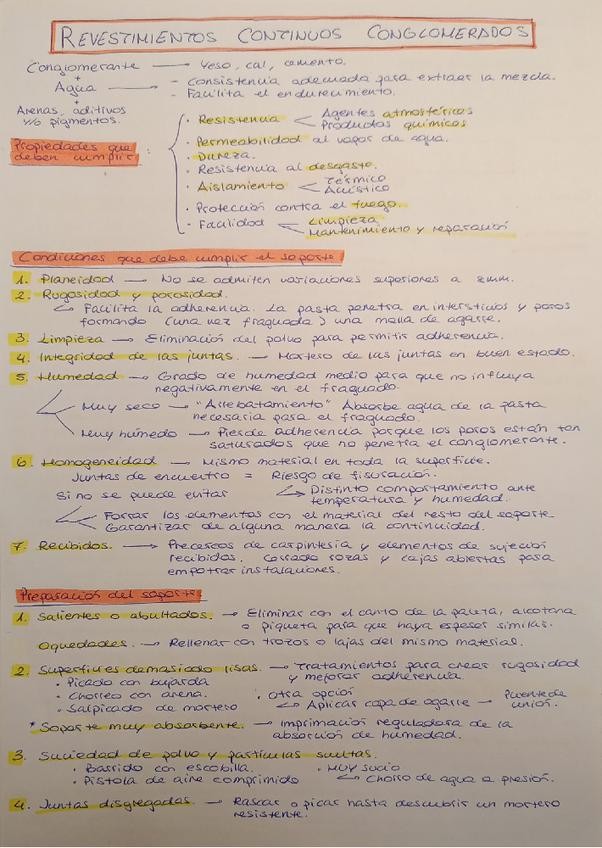 REVESTIMIENTOS CONTINUOS CONGLOMERADOS
Conglomerante → Yeso, cal, cemento.
+
Agua → - Consistencia adecuada para extraer la mezcla.
- Facilita el endurecimiento.
+
Arenas, aditivos
y/o pigmentos.
Propiedades que deben cumplir :
· Resistencia < Agentes atmosféricos
Productos químicos
· Permeabilidad al vapor de agua.
· Dureza.
· Resistencia al desgaste.
· Aislamiento < Térmico
Acústico
· Protección contra el fuego.
· Facilidad < Limpieza
Mantenimiento y reparación
Condiciones que debe cumplir el soporte
1. Planeidad → No se admiten variaciones superiores a 2mm.
2. Rugosidad y porosidad.
↳ Facilita la adherencia. La pasta penetra en intersticios y poros
formando (una vez fraguada) una malla de agarre.
3. Limpieza → Eliminación del polvo para permitir adherencia.
4. Integridad de las juntas. → Mortero de las juntas en buen estado.
5. Humedad → Grado de humedad medio para que no influya
negativamente en el fraguado.
Muy seco → "Arrebatamiento" Absorbe agua de la pasta
necesaria para el fraguado.
Muy húmedo → Pierde adherencia porque los poros están tan
saturados que no penetra el conglomerante.
6. Homogeneidad → Mismo material en toda la superficie.
Juntas de encuentro = Riesgo de fisuración.
Si no se puede evitar ↳ Distinto comportamiento ante
temperatura y humedad.
Forrar los elementos con el material del resto del soporte.
Garantizar de alguna manera la continuidad.
7. Recibidos. → Precercos de carpintería y elementos de sujeción
recibidos. Cerrado rozas y cajas abiertas para
empotrar instalaciones.
Preparación del soporte
1. Salientes o abultados. → Eliminar con el canto de la paleta, alcotana
o piqueta para que haya espesor similar.
Oquedades. → Rellenar con trozos o lajas del mismo material.
2. Superficies demasiado lisas. → Tratamientos para crear rugosidad
y mejorar adherencia.
· Picado con bujarda
· Chorreo con arena. · Otra opción
· Salpicado de mortero ↳ Aplicar capa de agarre → Puente de
unión.
* Soporte muy absorbente. → Imprimación reguladora de la
absorción de humedad.
3. Suciedad de polvo y partículas sueltas.
· Barrido con escobilla. · Muy sucio
· Pistola de aire comprimido ↳ Chorro de agua a presión.
4. Juntas disgregadas. → Rascar o picar hasta descubrir un mortero
resistente.